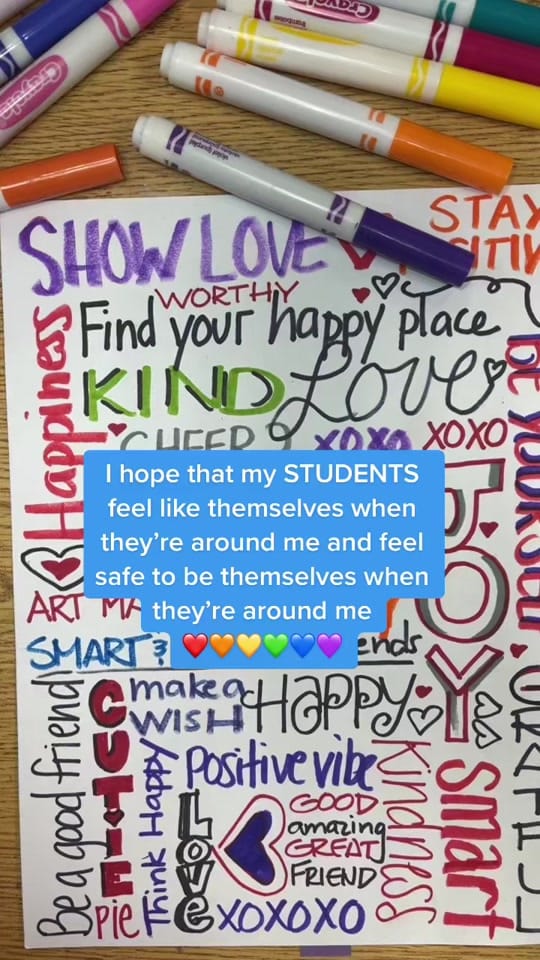 Crayola
Crayola
SHOW LOVE
STAY
WORTHY
Find your happy place
Happiness
KIND
Love
be yourself
CHEER
xoxo
XOXO
I hope that my STUDENTS
feel like themselves when
they're around me and feel
safe to be themselves when
they're around me
❤️🧡💛💚💙💜
JOY
ART
SMART &
make a
WISH
HAPPY
Be a good friend
CUTIE
pie
Think Happy
Positive vibe
LOVE
GOOD
amazing
GREAT
FRIEND
Kindness
Smart
XOXOXO